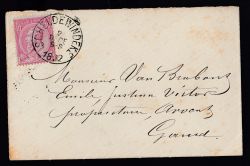 SCHELDEWINDEKE
Monsieur Van Brabant
Emile, Justin Victor
propriétaire, Avocat
Gand